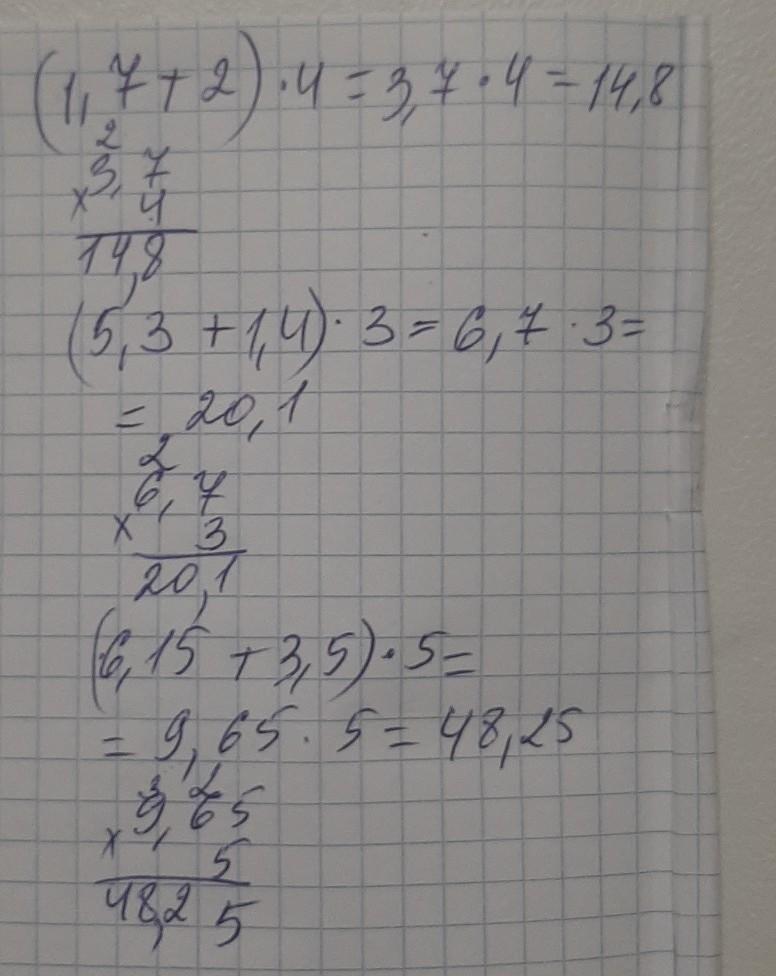 (1,7+2)·4=3,7·4=14,8
2
3,7
× 4
14,8
(5,3+1,4)·3=6,7·3=
=20,1
2
6,7
× 3
20,1
(6,15+3,5)·5=
=9,65·5=48,25
3 2
9,65
× 5
48,25